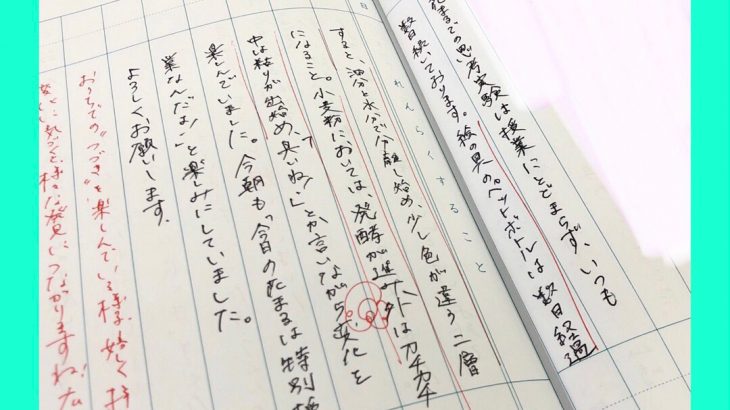 の思考実験は授業にとどまらず、いつも
続いております。絵の具のペットボトルは数日経過
れんらくすること
すると、油分と水分で分離し始め、少し色が違う二層
になること。小麦粉においては、発酵が進み外はカチカチ
中は粘りが出始め、「臭いね!」とか言いながら変化を
楽しんでいました。今朝も「今日のたまるは特別授
業なんだよ!」と楽しみにしていました。
よろしくお願いします。
おうちでの"つづき"を楽しんでいる様子、嬉しく拝
気づくと様々な発見につながりますね!